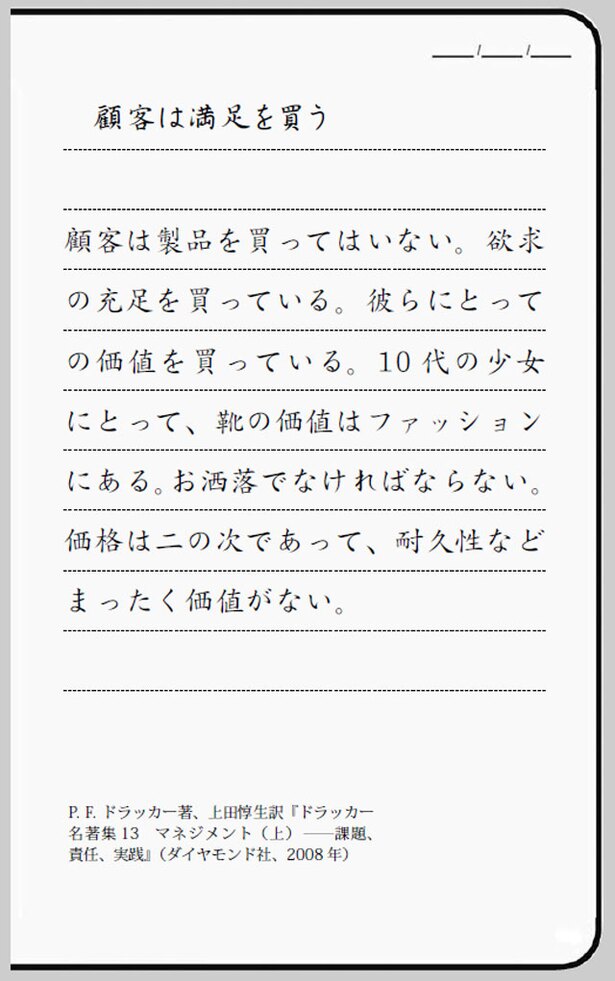 ___/___/___
顧客は満足を買う
顧客は製品を買ってはいない。欲求
の充足を買っている。彼らにとって
の価値を買っている。10代の少女
にとって、靴の価値はファッション
にある。お洒落でなければならない。
価格は二の次であって、耐久性など
まったく価値がない。
P. F. ドラッカー著、上田惇生訳『ドラッカー
名著集13　マネジメント（上）――課題、
責任、実践』（ダイヤモンド社、2008年）